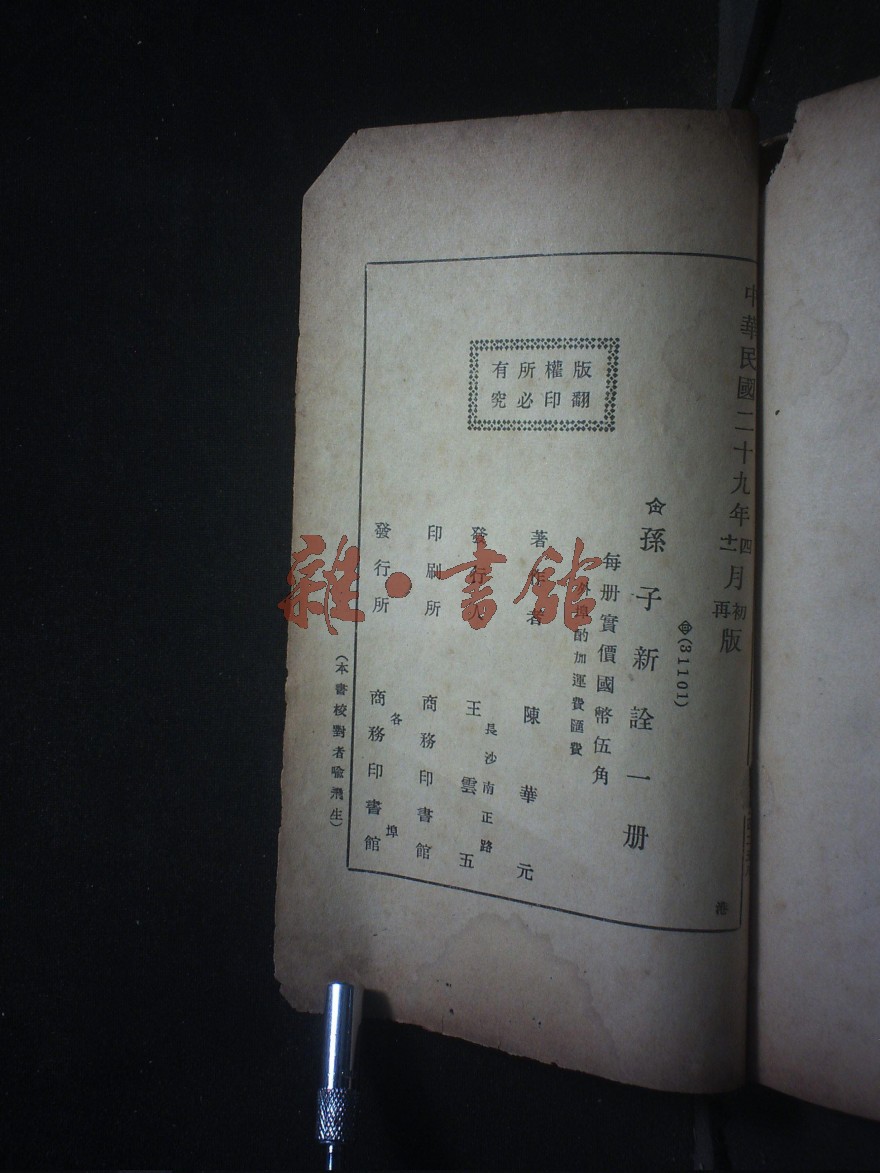 中華民國二十九年四月初版
十二月再版
(31101)
孫子新詮一册
每册實價國幣伍角
外埠酌加運費匯費
著作者 陳華元
發行人 王雲五
長沙南正路
印刷所 商務印書館
發行所 商務印書館
各埠
版權所有
翻印必究
(本書校對者喻飛生)
港
雜·書館